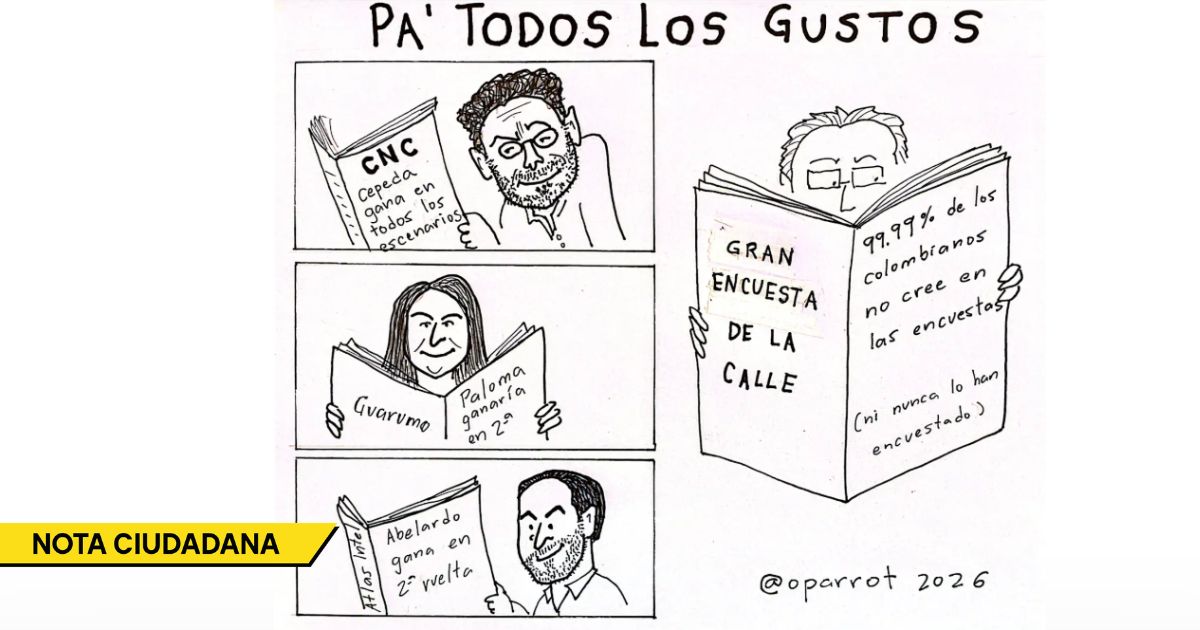 PA' TODOS LOS GUSTOS
CNC
Cepeda
gana en
todos los
escenarios
Guarumo
Paloma
ganaría
en 2ª
Atlas Intel
Abelardo
gana en
2ª vuelta
GRAN
ENCUESTA
DE LA
CALLE
99.99% de los
colombianos
no cree en
las encuestas
(ni nunca lo han
encuestado)
@oparrot 2026
NOTA CIUDADANA